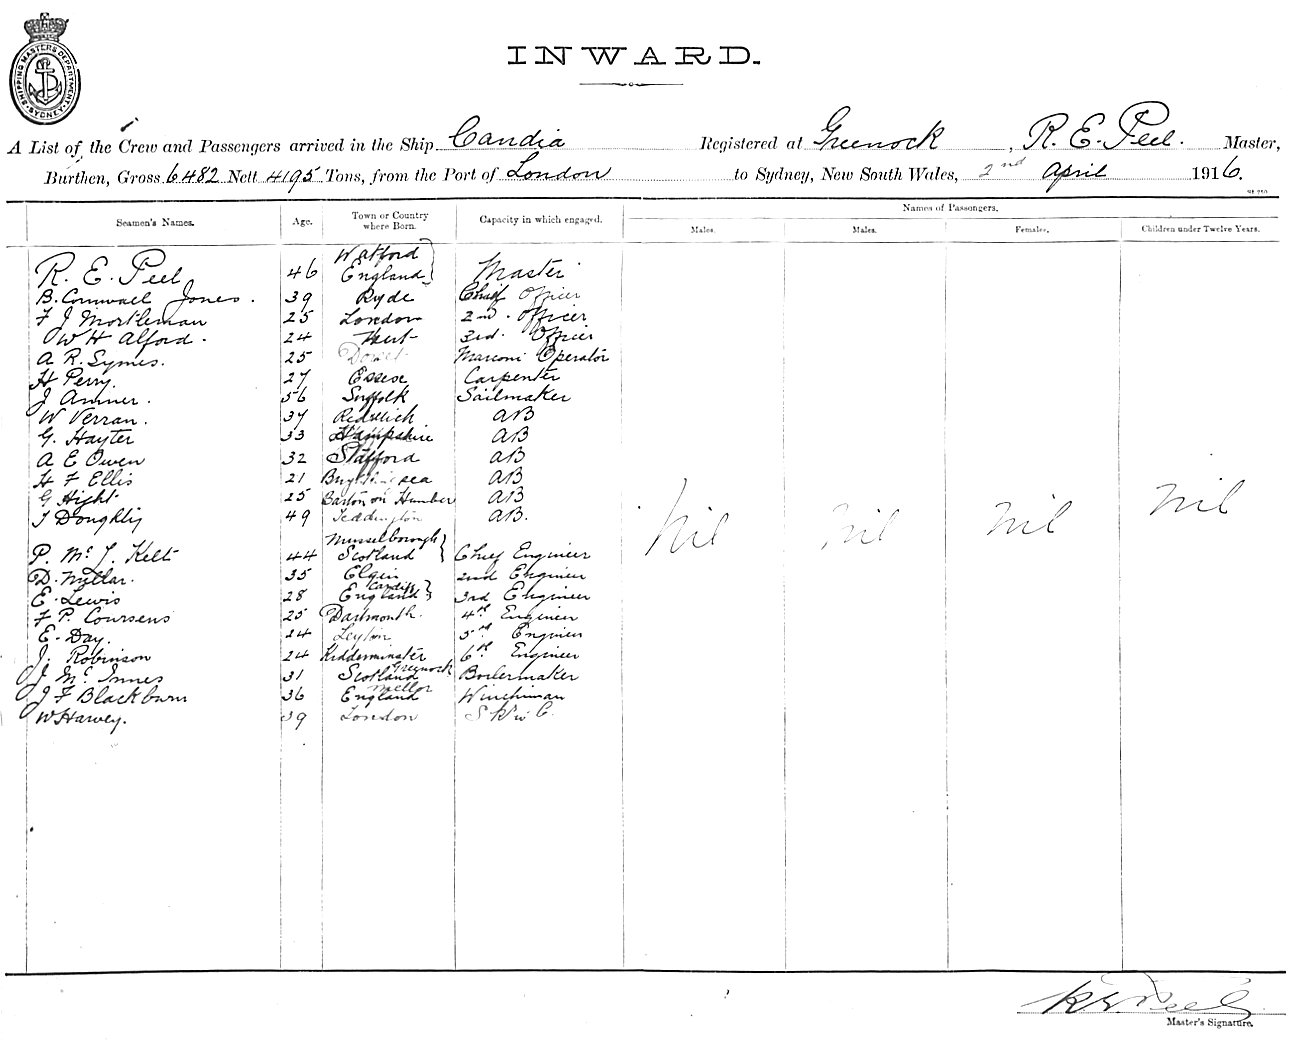 SHIPPING MASTERS DEPARTMENT SYDNEY
INWARD.
A List of the Crew and Passengers arrived in the Ship Candia Registered at Greenock, R. E. Peel. Master,
Burthen, Gross 6482 Nett 4195 Tons, from the Port of London to Sydney, New South Wales, 2nd April 1916.
Seamen's Names. Age. Town or Country where Born. Capacity in which engaged. Names of Passengers.
Males. Males. Females. Children under Twelve Years.
R. E. Peel 46 Watford England Master
B. Cornwall Jones. 39 Ryde Chief Officer
F J Mortleman 25 London 2nd. Officer
W H Alford. 24 3rd. Officer
A R. Symes. 25 Dorset Marconi Operator
H Perry. 27 Essex Carpenter
J Amner. 56 Suffolk Sailmaker
W Verran. 37 AB
G. Hayter 33 Hampshire AB
A E Owen 32 Stafford AB
H F Ellis 21 AB
G Hight 25 Barton on Humber AB
J Doughty 49 Teddington AB.
P. McJ. Kelt 44 Musselborough Scotland Chief Engineer
D. Millar. 35 Elgin 2nd Engineer
E. Lewis 28 Cardiff England 3rd Engineer
F P. Coursens 25 Dartmouth. 4th Engineer
E. Day. 24 Leyton 5th Engineer
J. Robinson 24 Kidderminster 6th Engineer
J McInnes 31 Scotland Greenock Boilermaker
J F Blackburn 36 Mellor England Winchman
W Harvey. 39 London
Nil Nil Nil Nil
R E Peel
Master's Signature.